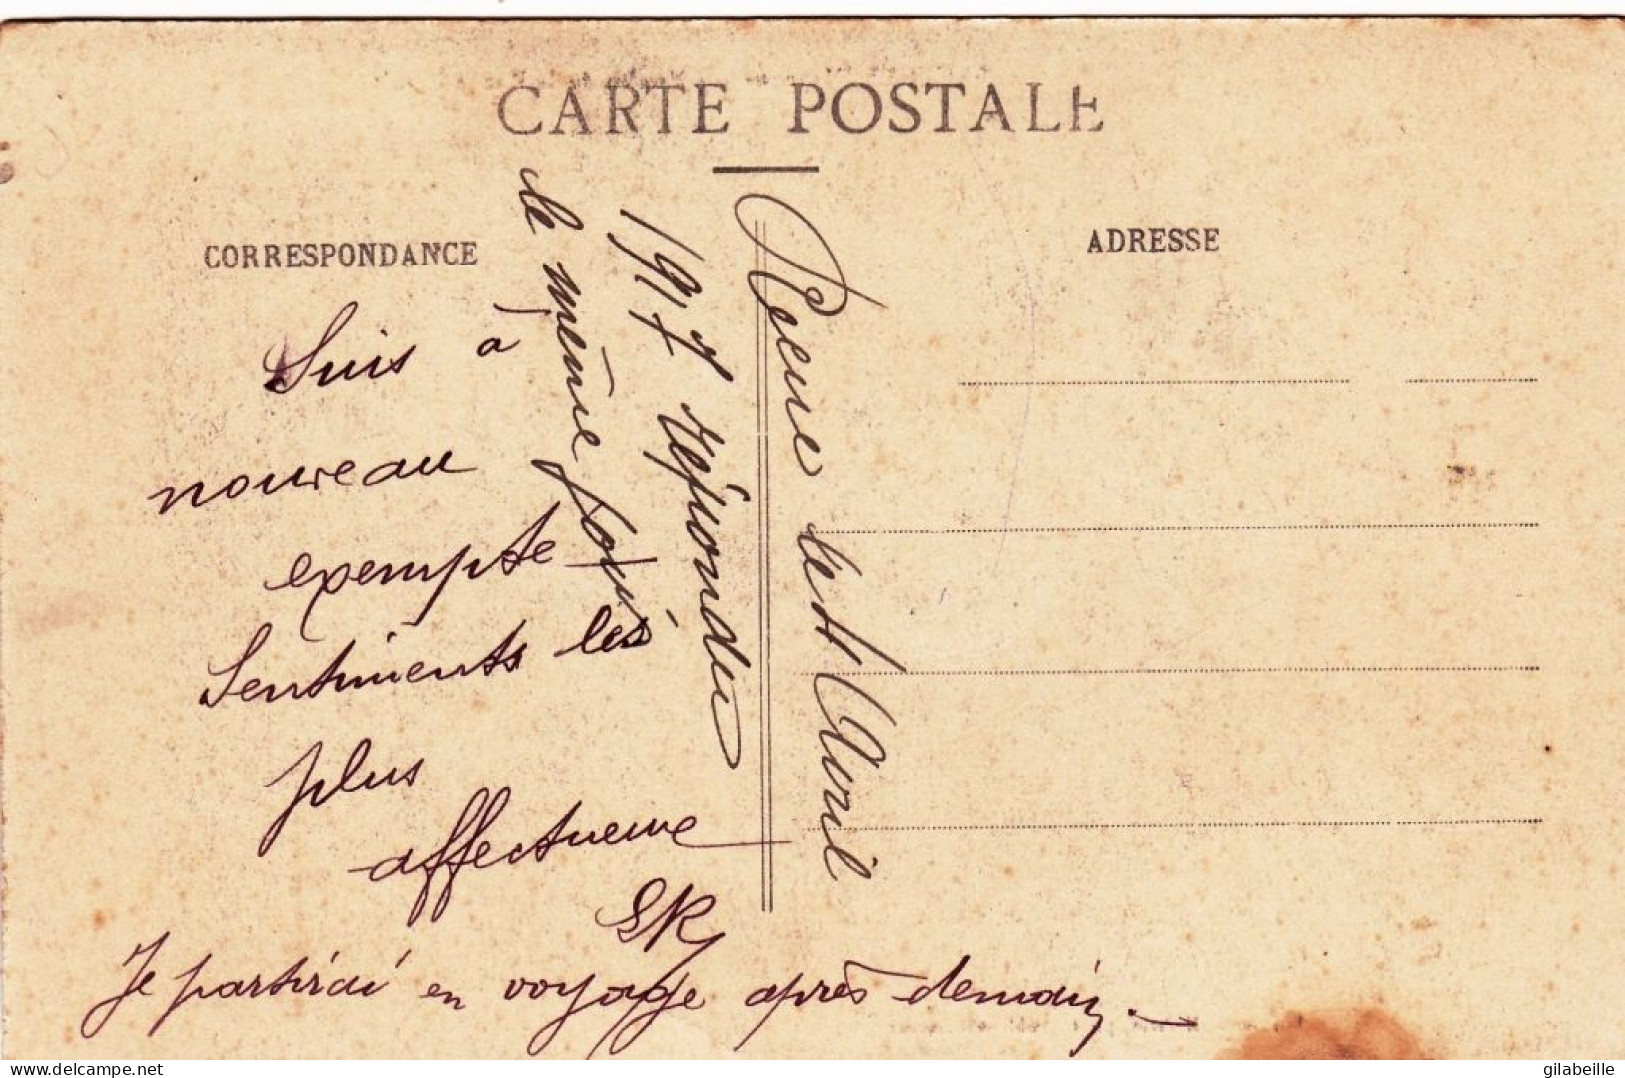 CARTE POSTALE
CORRESPONDANCE
ADRESSE
Suis à
nouveau
exempte
Sentiments les
plus
affectueux
SR
Je partirai en voyage après demain.
Reçue le 11 Avril
1917 répondu
le même jour
delcampe.net
gilabeille